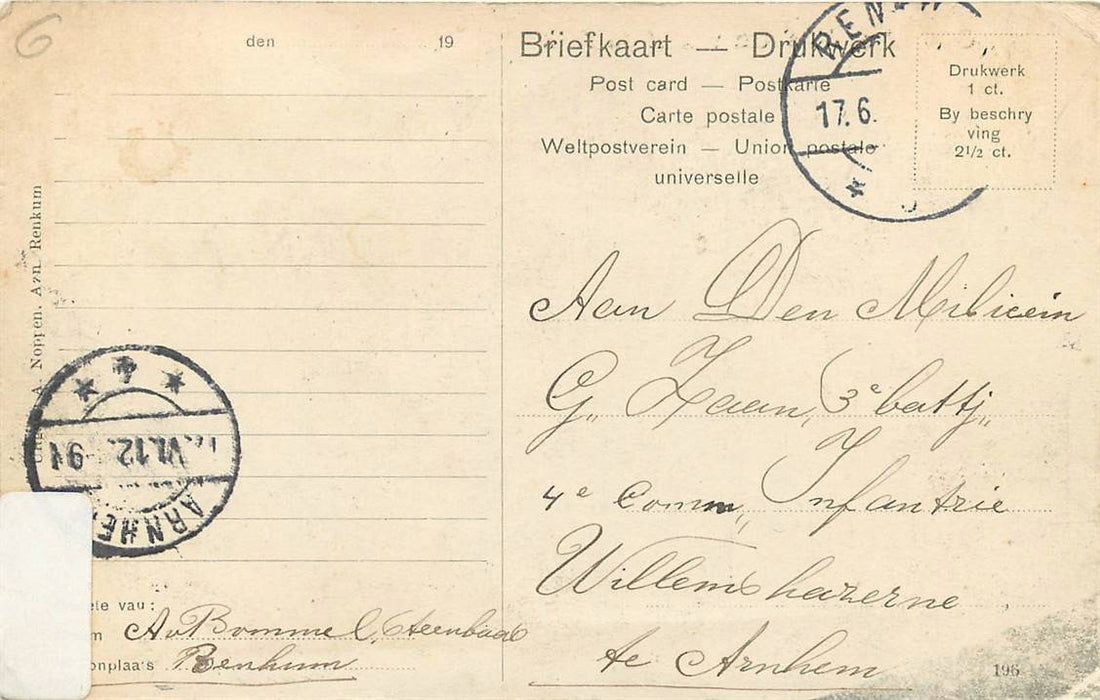 6
den 19
Briefkaart — Drukwerk
Post card — Postkarte
Carte postale
Weltpostverein — Union postale
universelle
Drukwerk
1 ct.
By beschry
ving
2½ ct.
17.6.
A. Noppen. Azn. Renkum
Aan Den Milicein
G,, Zaan, 3e battj,,
4e Comm,, Infantrie
Willemskazerne
te Arnhem
17.VI.12. 9V
ARNHE
ete vau:
Av Bommel, Steenbaas
onplaa's Renkum
196